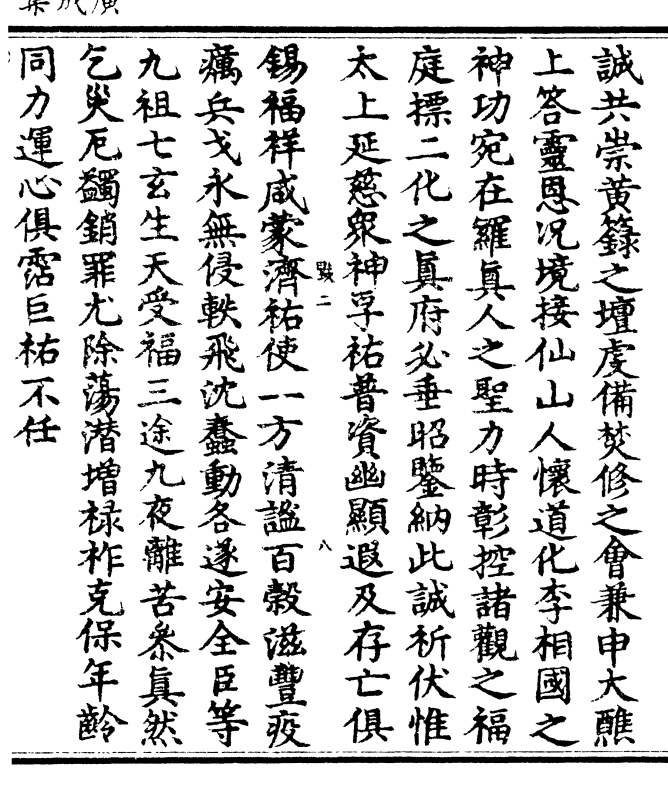 誠共崇黄籙之壇虔備焚修之會兼申大醮
上答靈恩况境接仙山人懷道化李相國之
神功宛在羅真人之聖力時彰控諸觀之福
庭摽二化之真府必垂昭鑒納此誠祈伏惟
太上延慈衆神孚祐普資幽顯遐及存亡俱
錫福祥咸蒙濟祐使一方清謐百穀滋豐疫
癘兵戈永無侵軼飛沈蠢動各遂安全臣等
九祖七玄生天受福三途九夜離苦叅真然
乞災厄蠲銷罪尤除蕩潜增禄祚克保年齡
同力運心俱霑巨祐不任
二
八